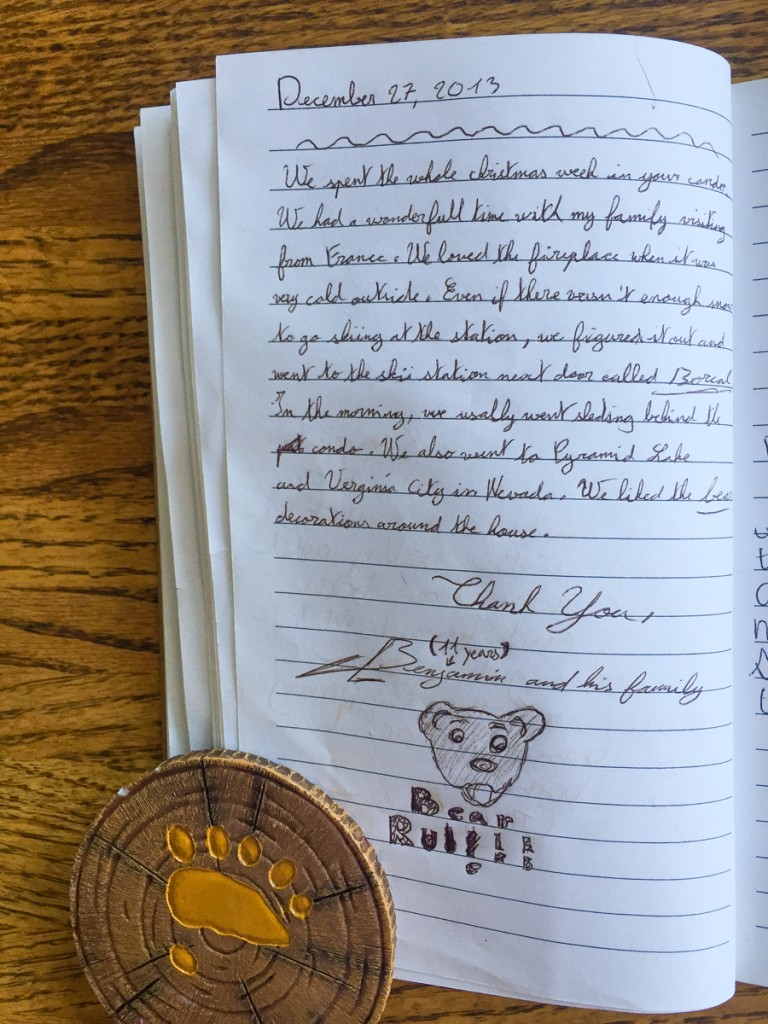 December 27, 2013
We spent the whole christmas week in your condo.
We had a wonderfull time with my family visiting
from France. We loved the fireplace when it was
very cold outside. Even if there wasn't enough snow
to go skiing at the station, we figured it out and
went to the skii station next door called Boreal
In the morning, we usally went sleding behind the
condo. We also went to Pyramid Lake
and Verginia City in Nevada. We liked the bear
decorations around the house.
Thank You,
(11 years)
Benjamin and his family
Bear